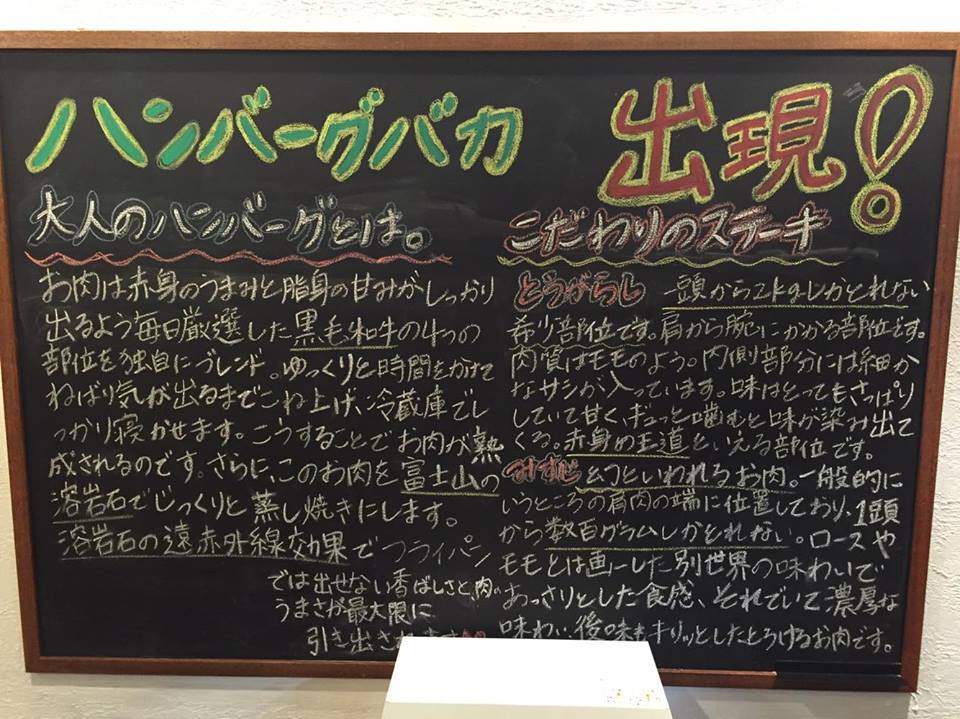 ハンバーグバカ 出現!
大人のハンバーグとは。
お肉は赤身のうまみと脂身の甘みがしっかり
出るよう毎日厳選した黒毛和牛の4つの
部位を独自にブレンド。ゆっくりと時間をかけて
ねばり気が出るまでこね上げ、冷蔵庫でし
っかり寝かせます。こうすることでお肉が熟
成されるのです。さらに、このお肉を富士山の
溶岩石でじっくりと蒸し焼きにします。
溶岩石の遠赤外線効果でフライパン
では出せない香ばしさと、肉の
うまさが最大限に
引き出され
こだわりのステーキ
とうがらし 一頭から2kgしかとれない
希少部位です。肩から腕にかかる部位です。
肉質はモモのよう。内側部分には細か
なサシが入っています。味はとってもさっぱり
していて甘く、ギュっと噛むと味が染み出て
くる。赤身の王道といえる部位です。
みすじ 幻といわれるお肉。一般的に
いうところの肩肉の端に位置しており、1頭
から数百グラムしかとれない。ロースや
モモとは画一した別世界の味わいで
あっさりとした食感、それでいて濃厚な
味わい、後味もキリッとしたとろけるお肉です。